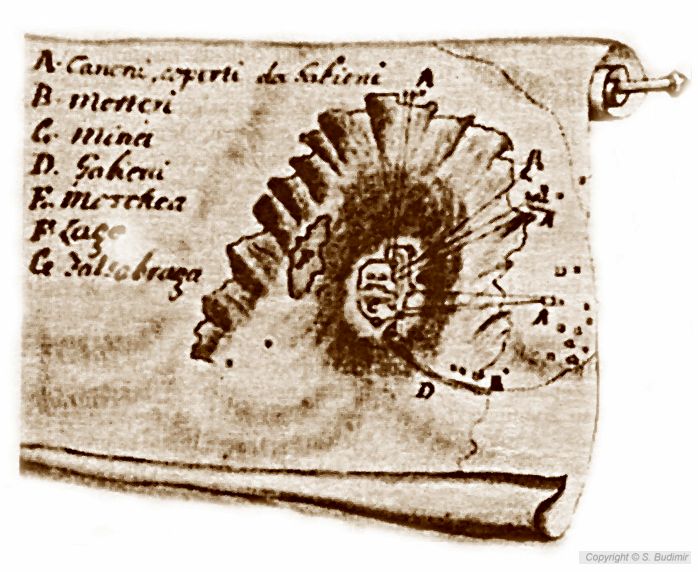 A. Canoni, coperti da Gabioni
B. Morteri
C. Minei
D. Gabioni
E. Moschea
F. Lago
A
B
A
A
D
F
Copyright © S. Budimir